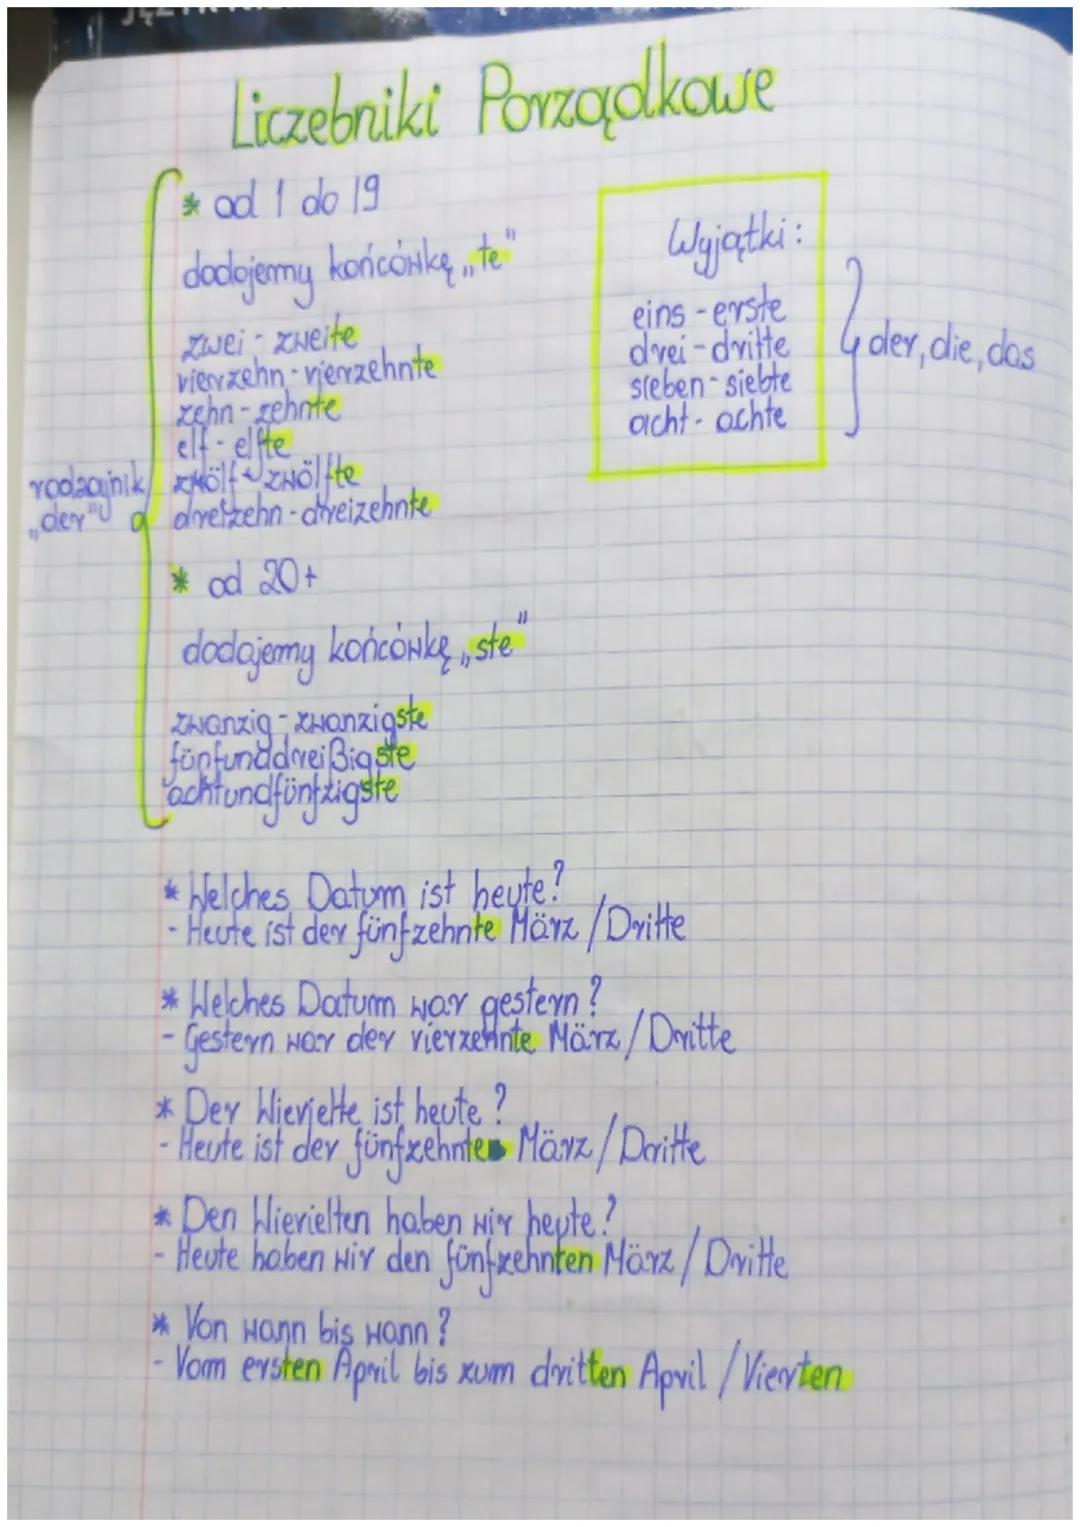 Liczebniki Porządkowe
* od 1 do 19
dodajemy końcówkę „te"
zwei - zweite
vierzehn - vierzehnte
zehn - zehnte
elf - elfte
zwölf - zwölfte
dreizehn - dreizehnte
rodzajnik
„der"
Wyjątki:
eins - erste
drei - dritte
sieben - siebte
acht - achte
der, die, das
* od 20+
dodajemy końcówkę „ste"
zwanzig - zwanzigste
fünfunddreißigste
achtundfünfzigste
* Welches Datum ist heute?
- Heute ist der fünfzehnte März / Dritte
* Welches Datum war gestern?
- Gestern war der vierzehnte März / Dritte
* Der Wievielte ist heute?
- Heute ist der fünfzehnte März / Dritte
* Den Wievielten haben wir heute?
- Heute haben wir den fünfzehnten März / Dritte
* Von wann bis wann?
- Vom ersten April bis zum dritten April / Vierten